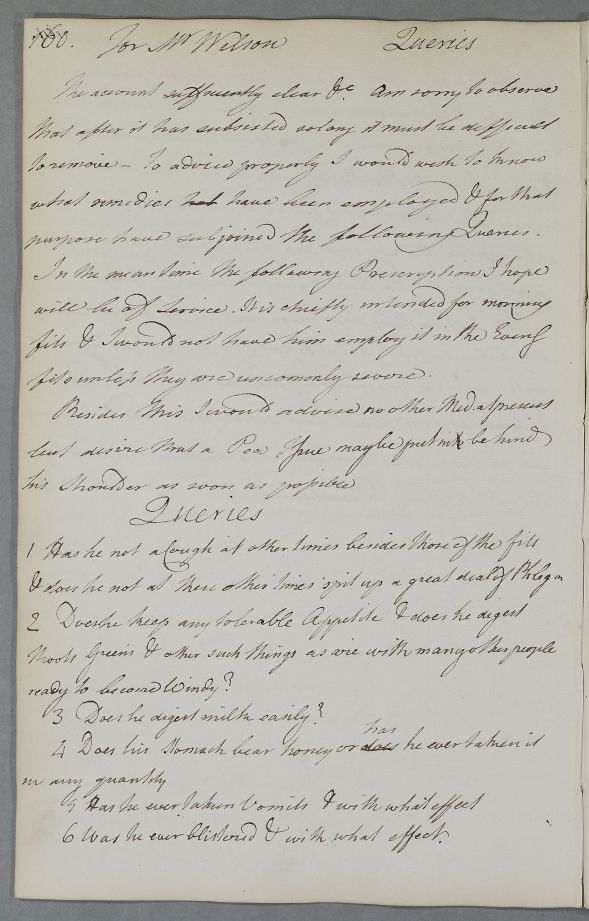 160. for Mr Wilson Queries
The account sufficiently clear &c. Am sorry to observe
that after it has subsisted so long it must be difficult
to remove – To advise properly I would wish to know
what remedies have been employed & for that
purpose have subjoined the following Queries.
In the mean time the following Prescription I hope
will be of Service. It is chiefly intended for morning
fits & I would not have him employ it in the Eveng
fits unless they are uncommonly severe.
Besides this I would advise no other Med. at present
but desire that a Pea Issue may be put in behind
his Shoulder as soon as possible
Queries
1 Has he not a Cough at other times besides those of the fits
& does he not at these other times spit up a great deal of Phlegm
2 Does he keep any tolerable Appetite & does he digest
Roots Greens & other such things as are with many other people
ready to become Windy?
3 Does he digest milk easily?
has
4 Does his Stomach bear honey or does he ever taken it
in any quantity
5 Has he ever taken Vomits & with what effect
6 Was he ever blistered & with what effect.